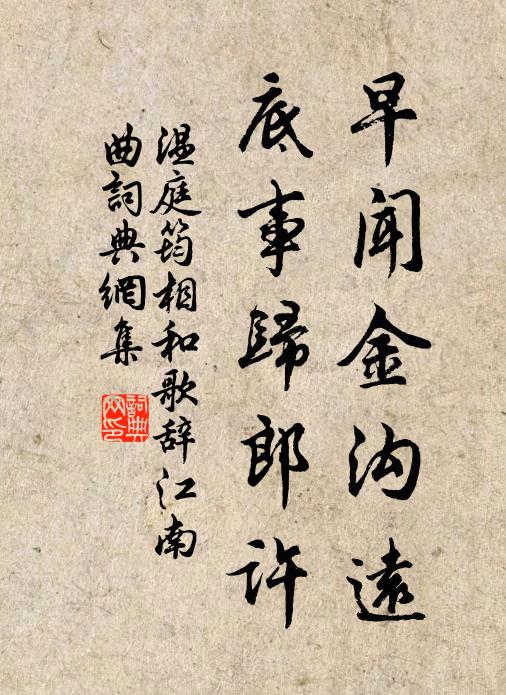 早聞金沟遠
底事歸郎許
温庭筠相和歌辞江南
曲詞典網集
詞典網印